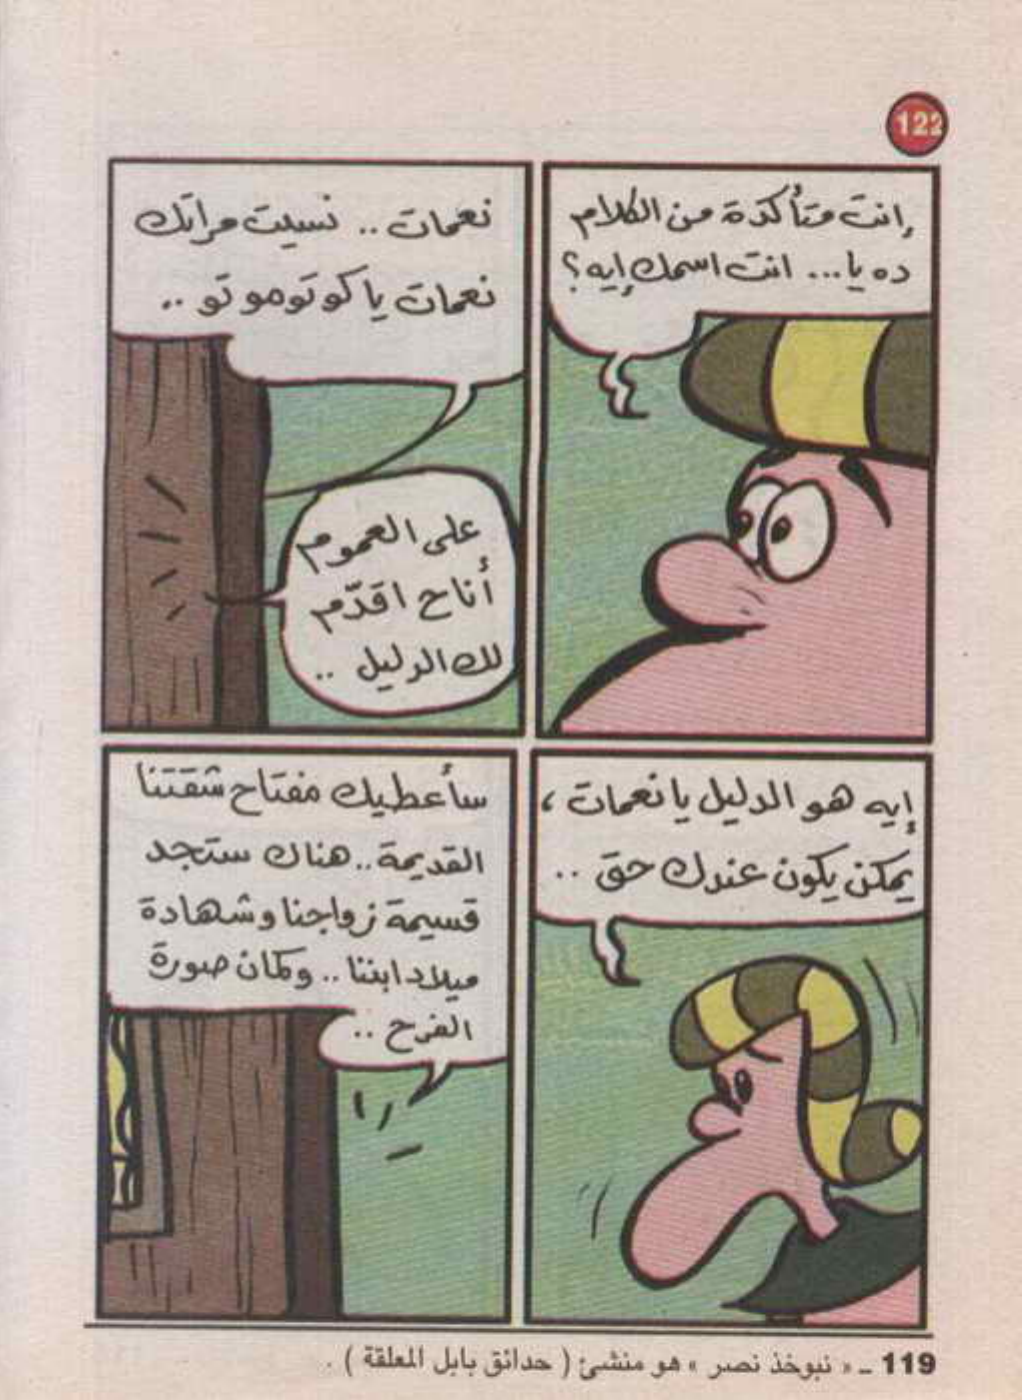 122
إنت متأكدة من الكلام
ده يا... انت اسمك إيه؟
نعمات .. نسيت مراتك
نعمات يا كوتوموتو ..
على العموم
أنا ح اقدّم
لك الدليل ..
إيه هو الدليل يا نعمات ،
يمكن يكون عندك حق ..
سأعطيك مفتاح شقتنا
القديمة .. هناك ستجد
قسيمة زواجنا وشهادة
ميلاد ابننا .. وكمان صورة
الفرح ..
119 ـ « نبوخذ نصر » هو منشئ ( حدائق بابل المعلقة ) .